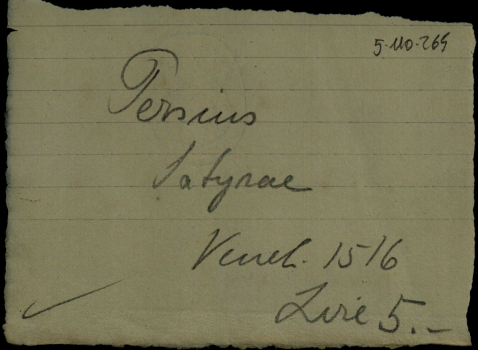 5.110.265
Persius
Satyrae
Venet. 1516
Lire 5.-